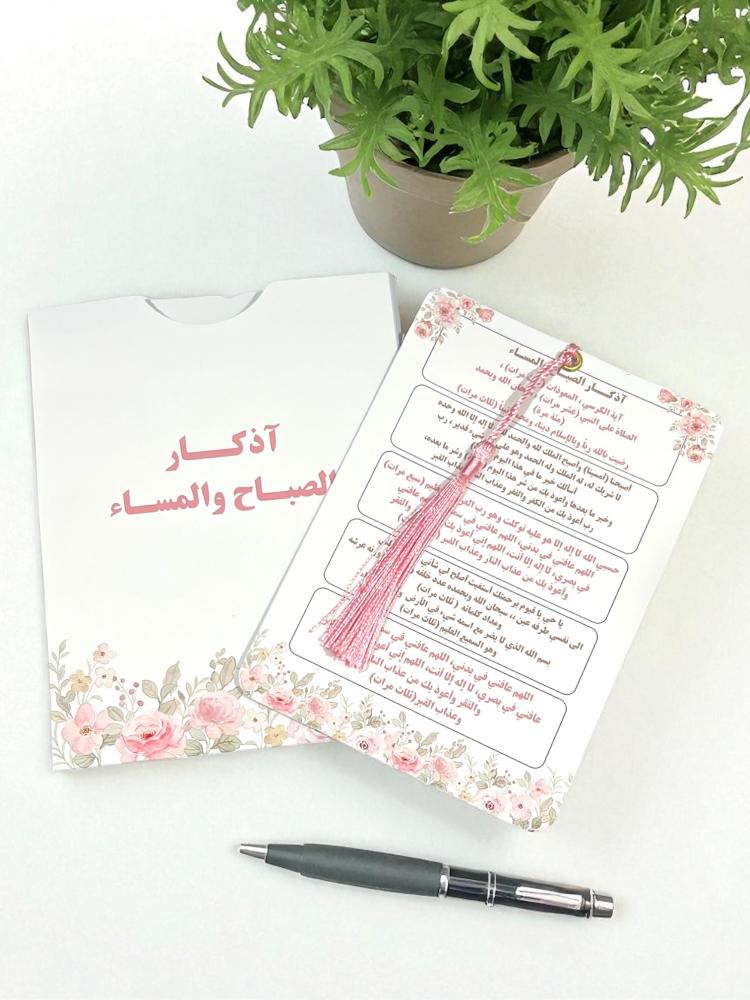 آذكــار
الصبـاح والمسـاء
آذكــار الصبـاح والمسـاء
آية الكرسي، المعوذات مرات) ،
الصلاة على النبي (عشر مرات) سبحان الله وبحمده
(مئة مرة)
رضيت بالله رباً وبالإسلام دينا، (ثلاث مرات)
أصبحنا (أمسينا) وأصبح الملك لله والحمد لله لا إله إلا الله وحده
لا شريك له، له الملك وله الحمد وهو على قدير، رب
أسألك خير ما في هذا اليوم وشر ما بعده،
وخير ما بعدها وأعوذ بك من شر هذا اليوم
رب أعوذ بك من الكفر والفقر وعذاب القبر
حسبي الله لا إله إلا هو عليه توكلت وهو رب العرش (سبع مرات)
اللهم عافني في بدني، اللهم عافني في عافني
في بصري، لا إله إلا أنت، اللهم إني أعوذ بك والفقر
وأعوذ بك من عذاب النار وعذاب القبر
يا حي يا قيوم برحمتك أستغيث أصلح لي شأني
الى نفسي طرفة عين ،، سبحان الله وبحمده عدد خلقه عرشه
ومداد كلماته (ثلاث مرات)
بسم الله الذي لا يضر مع اسمه شيء في الأرض
وهو السميع العليم (ثلاث مرات)
اللهم عافني في بدني، اللهم عافني في
عافني في بصري، لا إله إلا أنت، اللهم إني أعوذ
والفقر وأعوذ بك من عذاب النار
وعذاب القبر (ثلاث مرات)